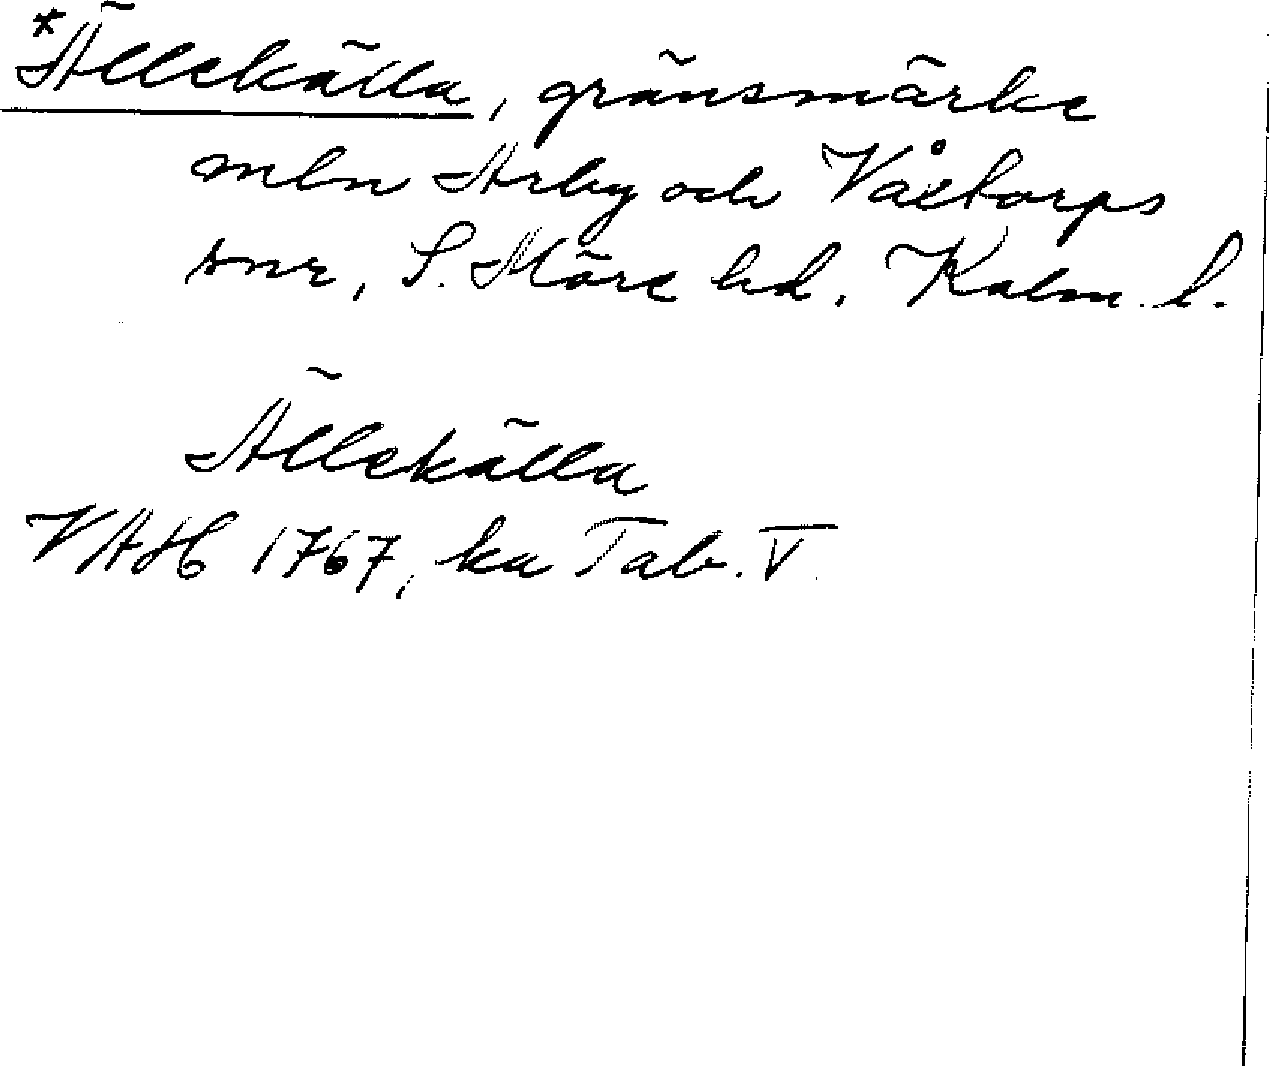 *Ällekälla, gränsmärke
mln Arby och Våetorps
snr, S. Möre hd, Kalm. l.
Ällekälla
VAH 1767, ka Tab. V